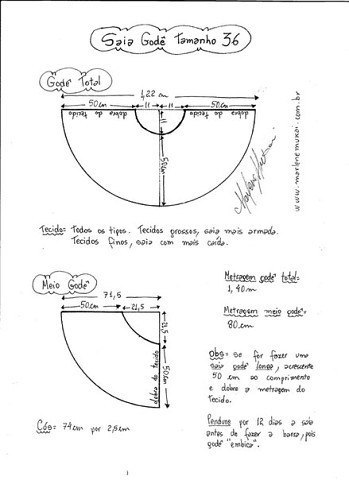 Saia Godê Tamanho 36
Godê Total
1,22 m
50cm 11 11 50cm
dobra do tecido dobra do tecido
11
50cm
www.marlenemukai.com.br
Tecido: Todos os tipos. Tecidos grossos, saia mais armada.
Tecidos finos, saia com mais caída.
Meio Godê
71,5
50cm 21,5
21,5
50cm
dobra do tecido
Cós: 74cm por 2,5cm
Metragem godê total:
1,40m
Metragem meio godê:
80cm
Obs: se for fazer uma
saia godê longa, acrescente
50 cm ao comprimento
e dobre a metragem do
tecido.
Pendure por 12 dias a saia
antes de fazer a barra, pois
godê "embica".